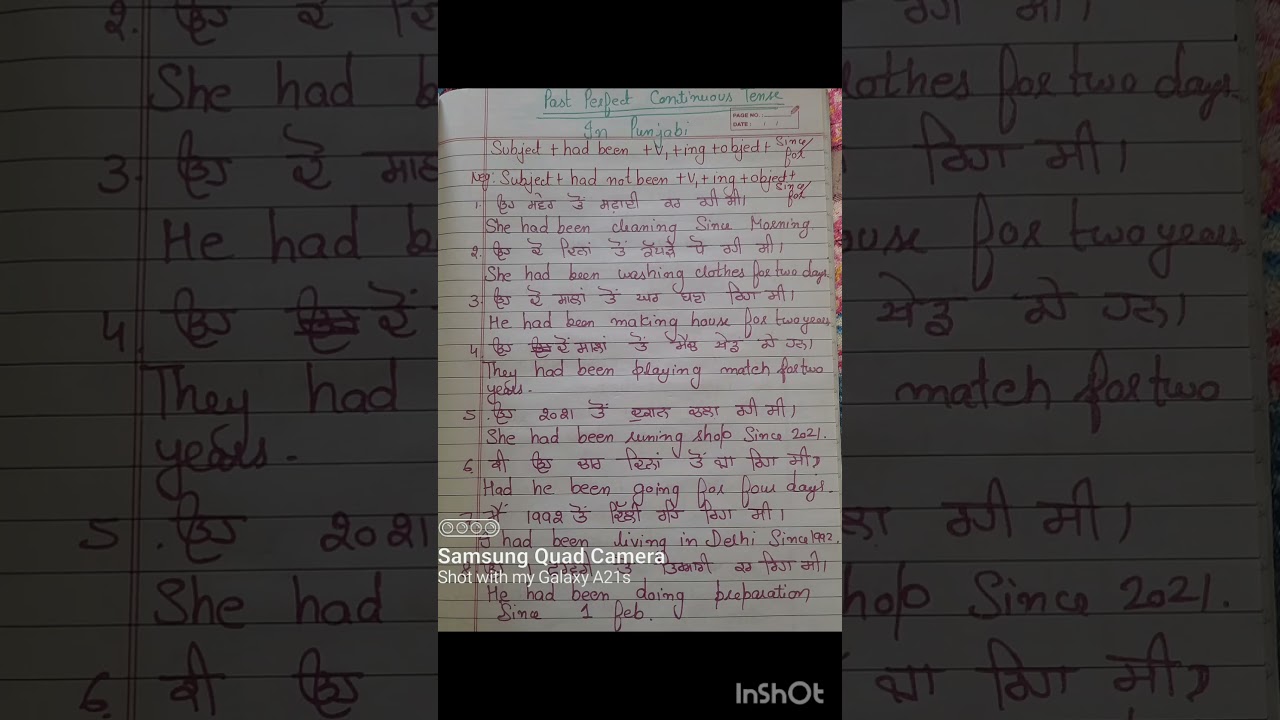 Past Perfect Continuous Tense
In Punjabi
PAGE NO.:
DATE: / /
Subject + had been + V1 + ing + object + Since/for
Neg: Subject + had not been + V1 + ing + object + Since/for
1. ਉਹ ਸਵੇਰ ਤੋਂ ਸਫ਼ਾਈ ਕਰ ਰਹੀ ਸੀ।
She had been cleaning Since Morning.
2. ਉਹ ਦੋ ਦਿਨਾਂ ਤੋਂ ਕੱਪੜੇ ਧੋ ਰਹੀ ਸੀ।
She had been washing clothes for two days.
3. ਉਹ ਦੋ ਸਾਲਾਂ ਤੋਂ ਘਰ ਬਣਾ ਰਿਹਾ ਸੀ।
He had been making house for two years
4. ਉਹ ਦੋਂ ਸਾਲਾਂ ਤੋਂ ਮੈਚ ਖੇਡ ਰਹੇ ਹਨ।
They had been playing match for two
years.
5. ਉਹ ੨੦੨੧ ਤੋਂ ਦੁਕਾਨ ਚਲਾ ਰਹੀ ਸੀ।
She had been runing shop Since 2021.
6. ਕੀ ਉਹ ਚਾਰ ਦਿਨਾਂ ਤੋਂ ਜਾ ਰਿਹਾ ਸੀ?
Had he been going for four days.
ਮੈਂ 199੨ ਤੋਂ ਦਿੱਲੀ ਰਹਿ ਰਿਹਾ ਸੀ।
I had been living in Delhi Since 1992.
ਤੋਂ ਤਿਆਰੀ ਕਰ ਰਿਹਾ ਸੀ।
He had been doing preparation
Since 1 feb.
Samsung Quad Camera
Shot with my Galaxy A21s
InShOt